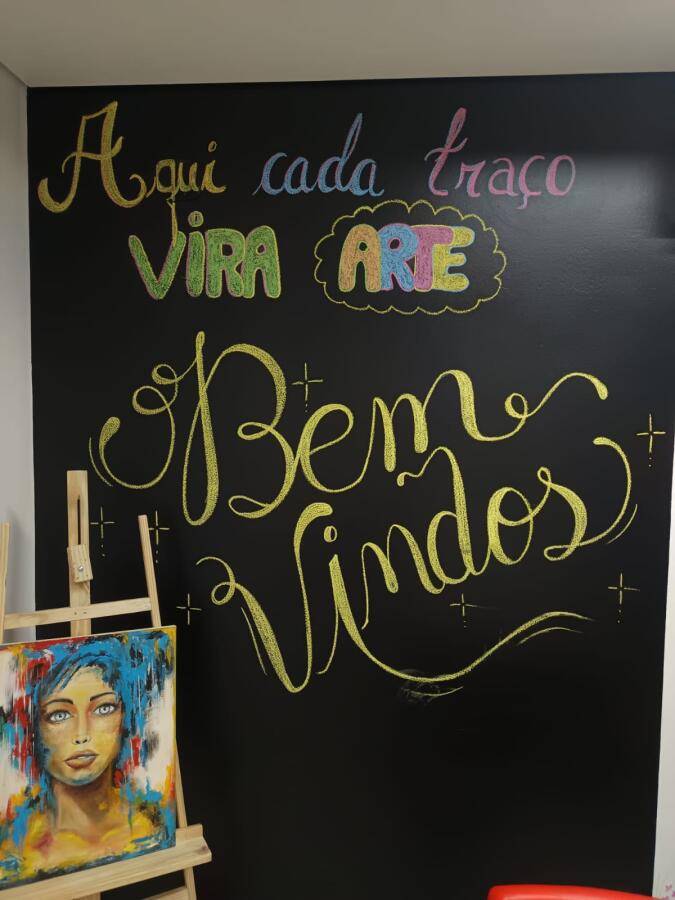 Aqui cada traço
VIRA ARTE
Bem
Vindos